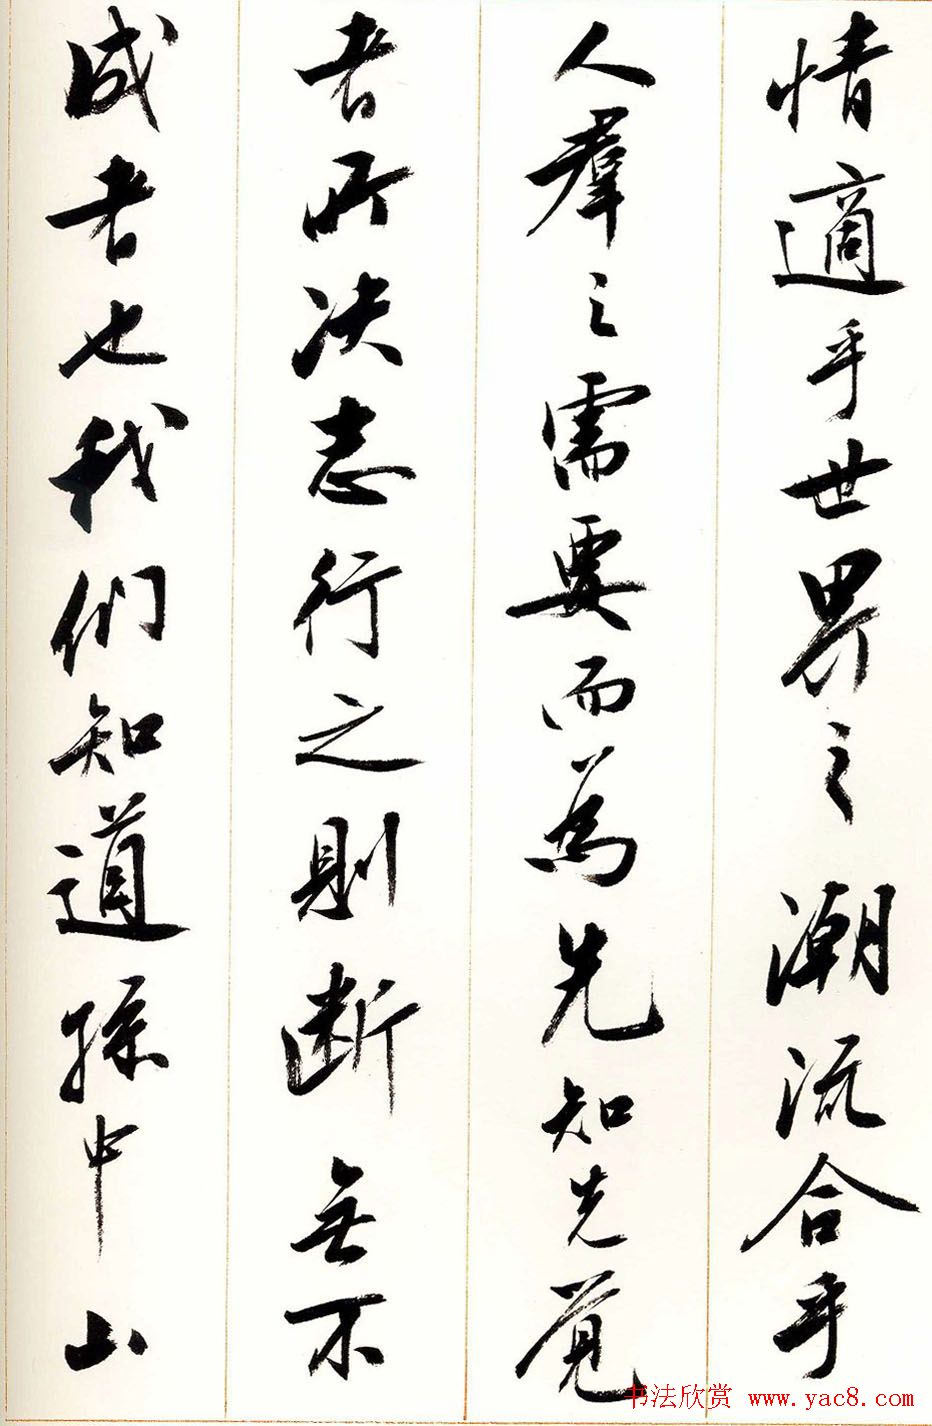 情適乎世界之潮流合乎
人羣之需要而為先知先覺
者所决志行之則断無不
成者也我们知道孫中山
书法欣赏 www.yac8.com